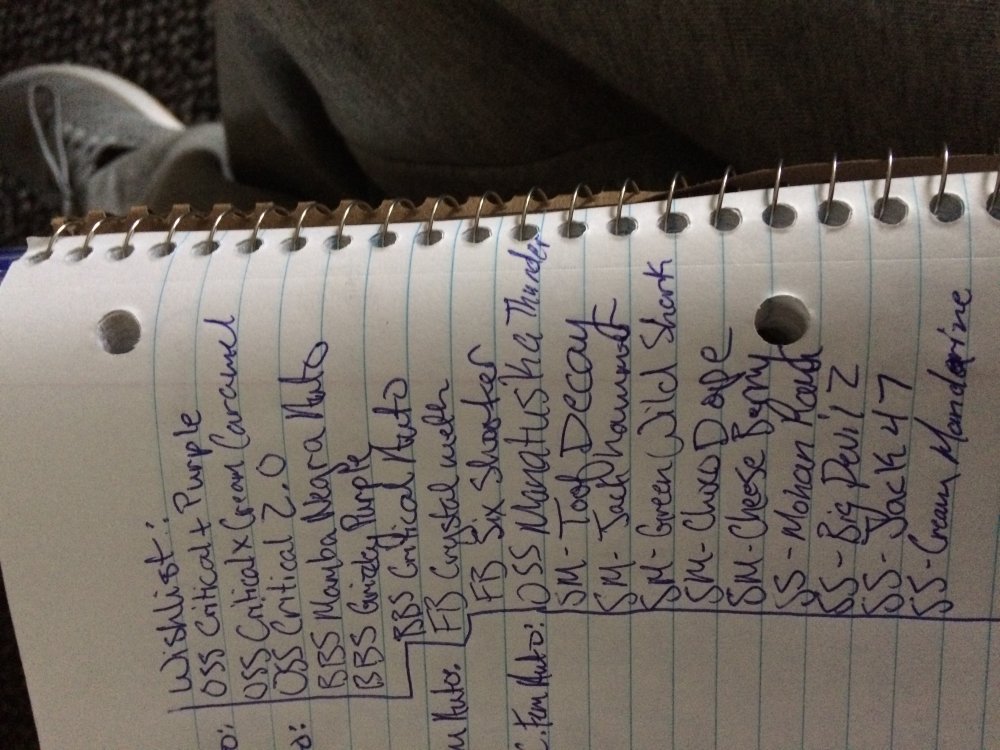 Wishlist:
OSS Critical + Purple
OSS Critical x Cream Caramel
OSS Critical 2.0
BBS Mamba Negra Auto
BBS Grizzly Purple
BBS Critical Auto
FB Crystal meth
FB Six Shooter
OSS Thunder
SM-
SM- Jack hammer
SM- Green Wild Shark
SM- Choco Dope
SM- Cheese Berry
SS- Mohan
SS- Big Devil 2
SS- Jack 47
SS- Cream Mandarine
Auto: